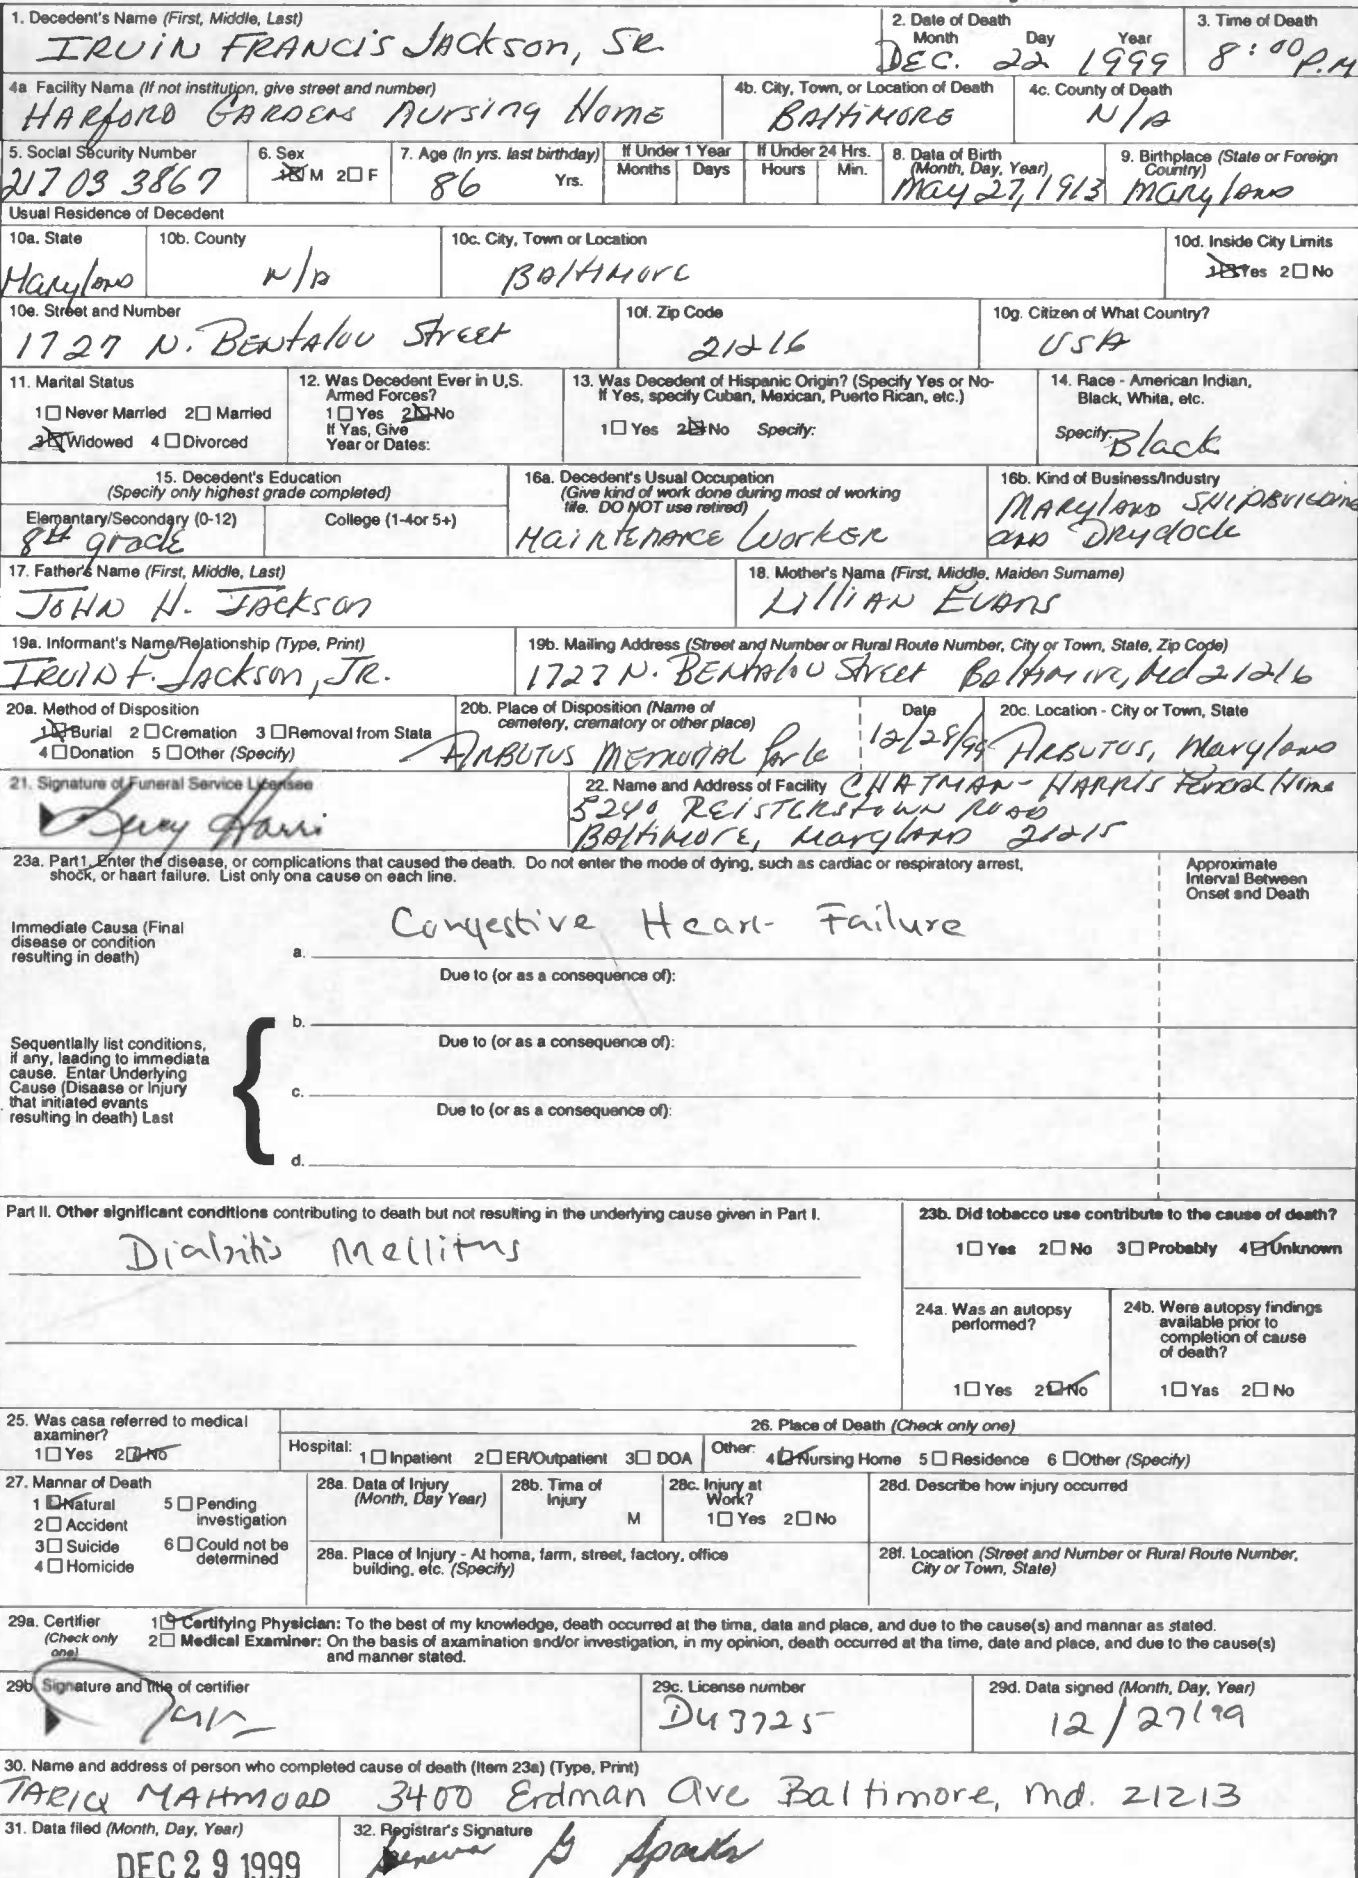 1. Decedent's Name (First, Middle, Last)
IRVIN FRANCIS JACKSON, SR.
2. Date of Death
Month Day Year
DEC. 22 1999
3. Time of Death
8:00 P.M
4a Facility Name (If not institution, give street and number)
HARFORD GARDENS NURSING HOME
4b. City, Town, or Location of Death
BALTIMORE
4c. County of Death
N/A
5. Social Security Number
217 03 3867
6. Sex
1☒ M 2☐ F
7. Age (In yrs. last birthday)
86 Yrs.
If Under 1 Year
Months Days
If Under 24 Hrs.
Hours Min.
8. Data of Birth
(Month, Day, Year)
May 27, 1913
9. Birthplace (State or Foreign
Country)
Maryland
Usual Residence of Decedent
10a. State
Maryland
10b. County
N/A
10c. City, Town or Location
Baltimore
10d. Inside City Limits
1☒ Yes 2☐ No
10e. Street and Number
1727 N. Bentalou Street
10f. Zip Code
21216
10g. Citizen of What Country?
USA
11. Marital Status
1☐ Never Married 2☐ Married
3☒ Widowed 4☐ Divorced
12. Was Decedent Ever in U.S.
Armed Forces?
1☐ Yes 2☒ No
If Yas, Give
Year or Dates:
13. Was Decedent of Hispanic Origin? (Specify Yes or No-
If Yes, specify Cuban, Mexican, Puerto Rican, etc.)
1☐ Yes 2☒ No Specify:
14. Race - American Indian,
Black, Whita, etc.
Specify: Black
15. Decedent's Education
(Specify only highest grade completed)
Elemantary/Secondary (0-12)
8th grade
College (1-4or 5+)
16a. Decedent's Usual Occupation
(Give kind of work done during most of working
life. DO NOT use retired)
Maintenance Worker
16b. Kind of Business/Industry
Maryland Shipbuilding
and Drydock
17. Father's Name (First, Middle, Last)
John H. Jackson
18. Mother's Nama (First, Middle, Maiden Surname)
Lillian Evans
19a. Informant's Name/Relationship (Type, Print)
IRVIN F. JACKSON, JR.
19b. Mailing Address (Street and Number or Rural Route Number, City or Town, State, Zip Code)
1727 N. Bentalou Street Baltimore, Md 21216
20a. Method of Disposition
1☒ Burial 2☐ Cremation 3☐ Removal from Stata
4☐ Donation 5☐ Other (Specify)
20b. Place of Disposition (Name of
cemetery, crematory or other place)
ARBUTUS MEMORIAL Park
Date
12/28/99
20c. Location - City or Town, State
ARBUTUS, Maryland
21. Signature of Funeral Service Licensee
Harri
22. Name and Address of Facility CHATMAN-HARRIS Funeral Home
5240 REISTERSTOWN ROAD
BALTIMORE, Maryland 21215
23a. Part1, Enter the disease, or complications that caused the death. Do not enter the mode of dying, such as cardiac or respiratory arrest,
shock, or haart failure. List only ona cause on each line.
Approximate
Interval Between
Onset and Death
Immediate Causa (Final
disease or condition
resulting in death)
a. Congestive Heart Failure
Due to (or as a consequence of):
b.
Due to (or as a consequence of):
Sequentially list conditions,
if any, laading to immediata
cause. Entar Underlying
Cause (Disaase or Injury
that initiated evants
resulting in death) Last
c.
Due to (or as a consequence of):
d.
Part II. Other significant conditions contributing to death but not resulting in the underlying cause given in Part I.
Diabitis Mellitus
23b. Did tobacco use contribute to the cause of death?
1☐ Yes 2☐ No 3☐ Probably 4☑ Unknown
24a. Was an autopsy
performed?
1☐ Yes 2☑ No
24b. Were autopsy findings
available prior to
completion of cause
of death?
1☐ Yas 2☐ No
25. Was casa referred to medical
axaminer?
1☐ Yes 2☑ No
26. Place of Death (Check only one)
Hospital: 1☐ Inpatient 2☐ ER/Outpatient 3☐ DOA
Other: 4☑ Nursing Home 5☐ Residence 6☐ Other (Specify)
27. Mannar of Death
1☑ Natural 5☐ Pending
investigation
2☐ Accident
3☐ Suicide 6☐ Could not be
determined
4☐ Homicide
28a. Data of Injury
(Month, Day Year)
28b. Tima of
Injury
M
28c. Injury at
Work?
1☐ Yes 2☐ No
28d. Describe how injury occurred
28a. Place of Injury - At homa, farm, street, factory, office
building, etc. (Specify)
28f. Location (Street and Number or Rural Route Number,
City or Town, State)
29a. Certifier
(Check only
one)
1☑ Certifying Physician: To the best of my knowledge, death occurred at the tima, data and place, and due to the cause(s) and mannar as stated.
2☐ Medical Examiner: On the basis of axamination and/or investigation, in my opinion, death occurred at tha time, date and place, and due to the cause(s)
and manner stated.
29b. Signature and title of certifier
29c. License number
D43725
29d. Data signed (Month, Day, Year)
12/27/99
30. Name and address of person who completed cause of death (Item 23a) (Type, Print)
TARIQ MAHMOOD 3400 Erdman Ave Baltimore, Md. 21213
31. Data filed (Month, Day, Year)
DEC 29 1999
32. Registrar's Signature
G Sparks